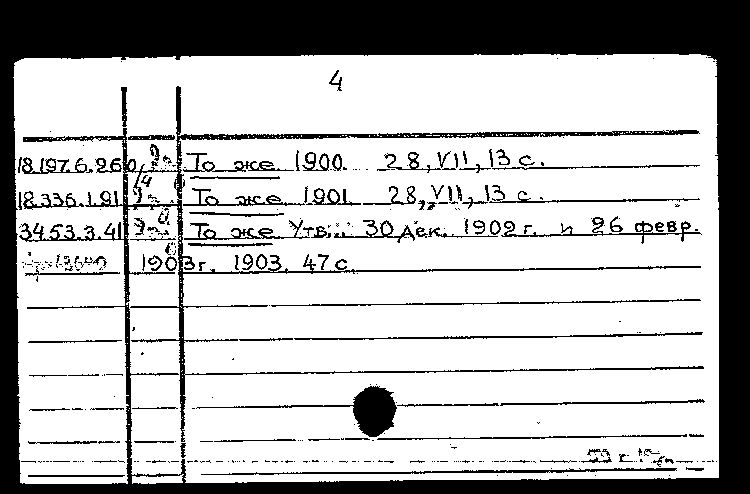 4
18.197.6.260 То же 1900. 28, VII, 13 с.
18.336.1.91 То же 1901 28, VII, 13 с.
34.53.3.41 То же Утв... 30 дек. 1902 г. и 26 февр.
1903 г. 1903. 47 с.